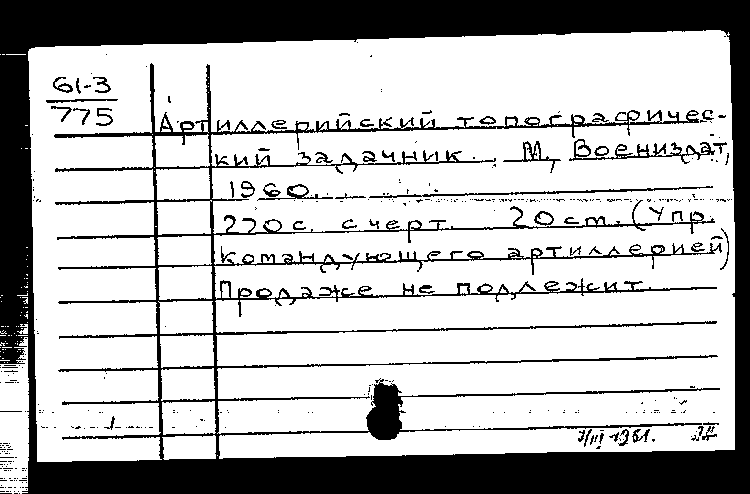 61-3
775
Артиллерийский топографичес-
кий задачник. М., Воениздат,
1960.
220 с. с черт. 20 см. (Упр.
командующего артиллерией)
Продаже не подлежит.
7/III 1961.